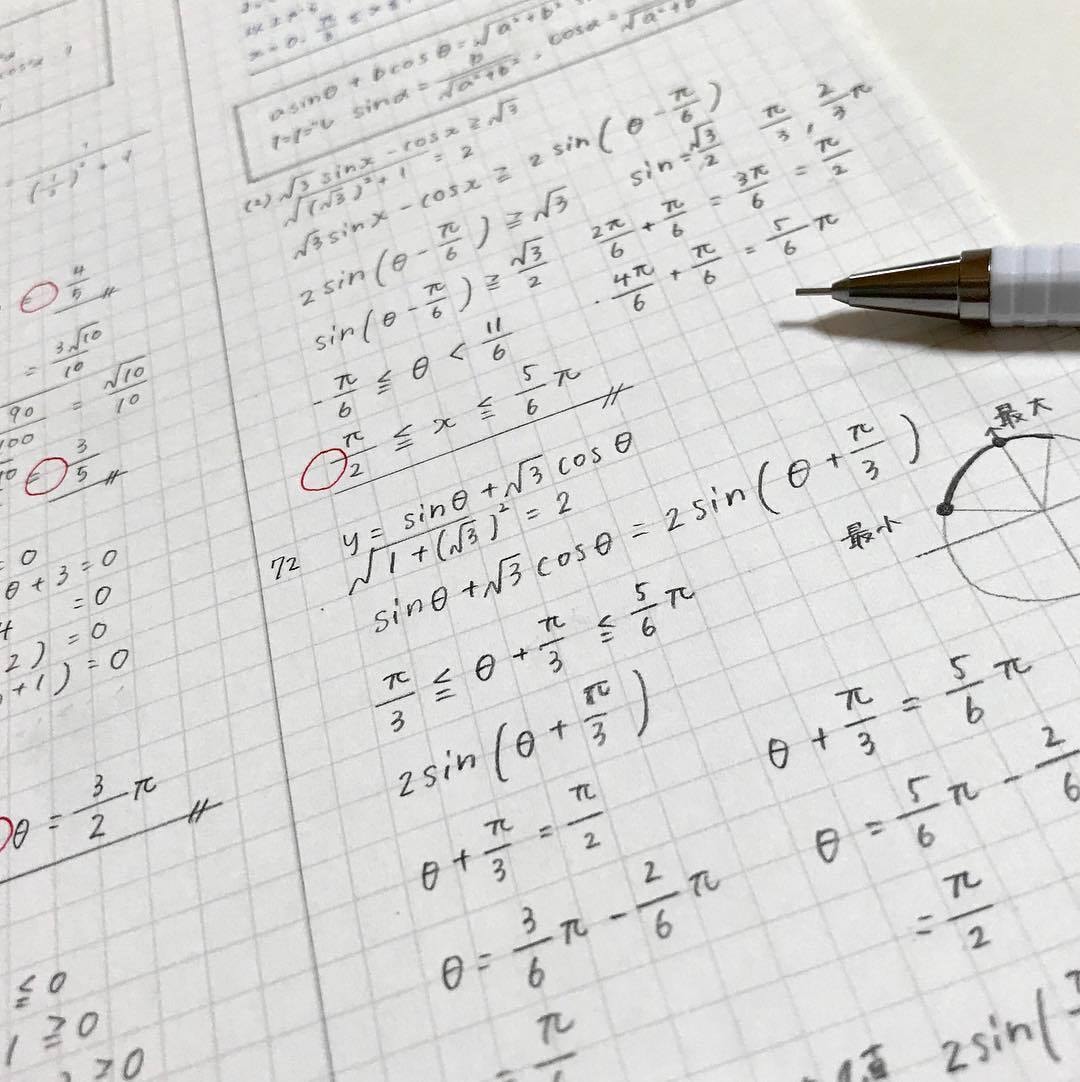 asinθ + bcosθ = √a²+b²
sinα = b/√a²+b² , cosα = √a²+b²
(2) √3 sinx - cosx ≧ √3
√(√3)²+1 = 2
√3 sinx - cosx ≧ 2 sin(θ - π/6)
2 sin(θ - π/6) ≧ √3
sin = √3/2 π/3, 2/3 π
sin(θ - π/6) ≧ √3/2
2π/6 + π/6 = 3π/6 = π/2
4π/6 + π/6 = 5/6 π
-π/6 ≦ θ < 11/6
π/2 ≦ x ≦ 5/6 π
72 y = sinθ + √3 cosθ
√1 + (√3)² = 2
sinθ + √3 cosθ = 2 sin(θ + π/3)
π/3 ≦ θ + π/3 ≦ 5/6 π
2 sin(θ + π/3)
θ + π/3 = π/2
θ = 3/6 π - 2/6 π
= π
θ + π/3 = 5/6 π
θ = 5/6 π - 2/6
= π/2
最大
最小
2 sin(
4/5
= 3√10/10
90/100 = √10/10
3/5
= 0
θ + 3 = 0
= 0
2) = 0
+ 1) = 0
θ = 3/2 π
≦ 0
1 ≧ 0
≥ 0